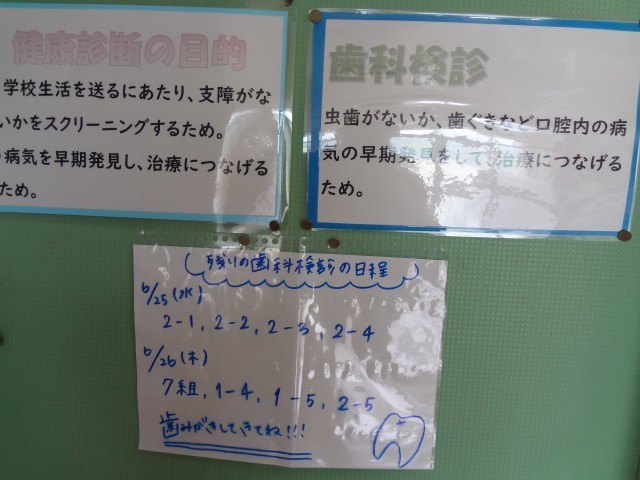 健康診断の目的
学校生活を送るにあたり、支障がな
いかをスクリーニングするため。
病気を早期発見し、治療につなげる
ため。
歯科検診
虫歯がないか、歯ぐきなど口腔内の病
気の早期発見をして、治療につなげる
ため。
残りの歯科検診の日程
6/25(水)
2-1, 2-2, 2-3, 2-4
6/26(木)
7組, 1-4, 1-5, 2-5
歯みがきしてきてね!!!